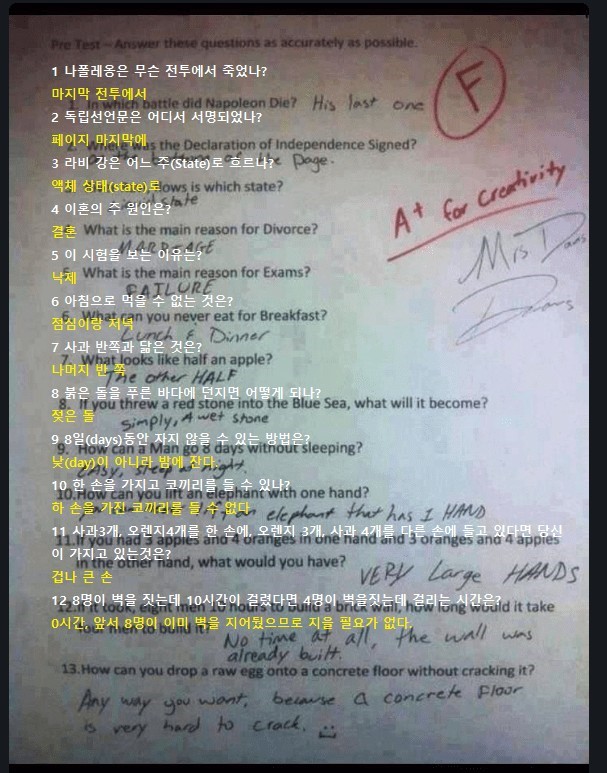 Pre Test – Answer these questions as accurately as possible.
F
1 나폴레옹은 무슨 전투에서 죽었나?
마지막 전투에서
1. In which battle did Napoleon Die? His last one
2 독립선언문은 어디서 서명되었나?
페이지 마지막에
was the Declaration of Independence Signed?
page.
3 라비 강은 어느 주(State)로 흐르나?
액체 상태(state)로
lows is which state?
state
A+ for Creativity
4 이혼의 주 원인은?
What is the main reason for Divorce?
결혼
MARRIAGE
5 이 시험을 보는 이유는?
What is the main reason for Exams?
낙제
FAILURE
6 아침으로 먹을 수 없는 것은?
6. What can you never eat for Breakfast?
점심이랑 저녁
Lunch & Dinner
7 사과 반쪽과 닮은 것은?
7. What looks like half an apple?
나머지 반 쪽
The other HALF
8 붉은 돌을 푸른 바다에 던지면 어떻게 되나?
8. If you threw a red stone into the Blue Sea, what will it become?
젖은 돌
simply, A wet stone
9 8일(days)동안 자지 않을 수 있는 방법은?
9. How can a Man go 8 days without sleeping?
낮(day)이 아니라 밤에 잔다.
10 한 손을 가지고 코끼리를 들 수 있나?
10.How can you lift an elephant with one hand?
하 손을 가진 코끼리를 들 수 없다
an elephant that has 1 HAND
11 사과3개, 오렌지4개를 한 손에, 오렌지 3개, 사과 4개를 다른 손에 들고 있다면 당신
11.If you had 3 apples and 4 oranges in one hand and 3 oranges and 4 apples
이 가지고 있는것은?
in the other hand, what would you have?
겁나 큰 손
VERY Large HANDS
12 8명이 벽을 짓는데 10시간이 걸렸다면 4명이 벽을짓는데 걸리는 시간은?
12.If it took, eight men 10 hours to build a brick wall, how long would it take
0시간, 앞서 8명이 이미 벽을 지어뒀으므로 지을 필요가 없다.
four men to build it?
No time at all, the wall was
already built.
13.How can you drop a raw egg onto a concrete floor without cracking it?
Any way you want, because a concrete floor
is very hard to crack.